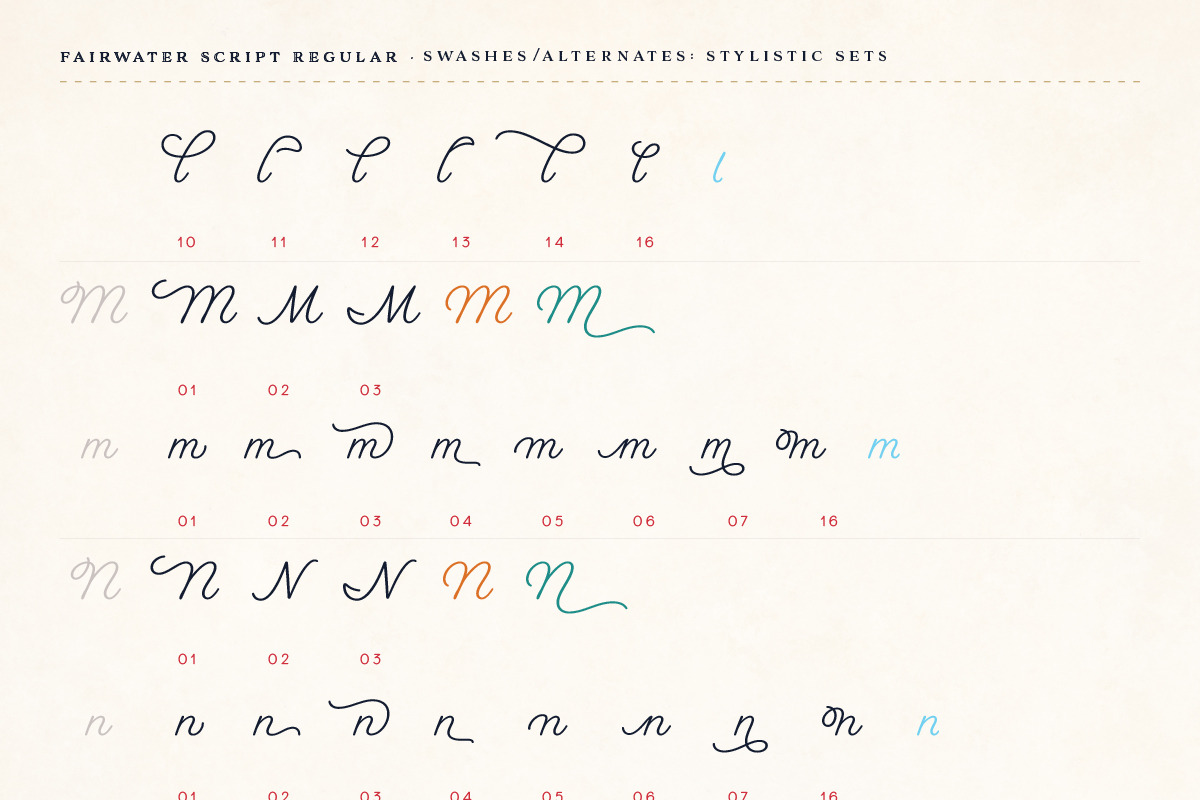 FAIRWATER SCRIPT REGULAR · SWASHES/ALTERNATES: STYLISTIC SETS
l l l l l l l
10 11 12 13 14 16
M M M M M M
01 02 03
m m m m m m m m m m
01 02 03 04 05 06 07 16
N N N N N N
01 02 03
n n n n n n n n n n
01 02 03 04 05 06 07 16